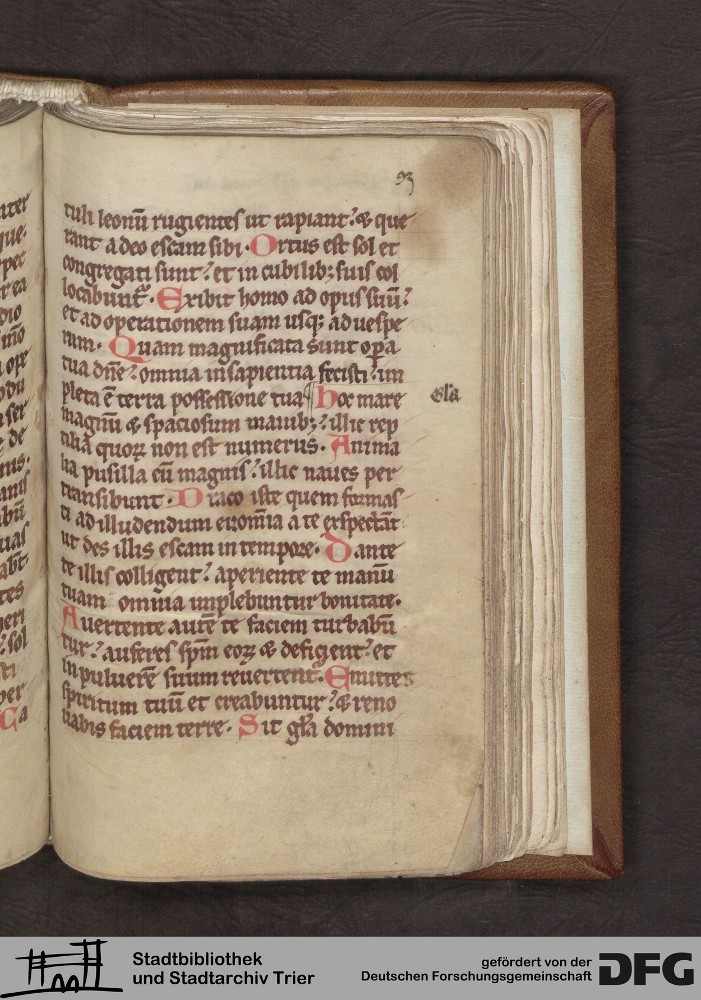 93
tuli leonū rugientes ut rapiant? & que
rant a deo escam sibi. Ortus est sol et
congregati sunt? et in cubilib; suis col
locabunt̄. Exibit homo ad opus suū?
et ad operationem suam usq; ad uespe
rum. Quam magnificata sunt oꝑa
tua dn̄e? omnia in sapientia fecisti? im
pleta ē terra possessione tua Hoc mare
gl̄a
magnū & spaciosum manib;? illic rep
tilia quoꝝ non est numerus. Anima
lia pusilla cū magnis? illic naues per
transibunt. Draco iste quem formas
ti ad illudendum ei? om̄ia a te exspectāt
ut des illis escam in tempore. Dante
te illis colligent? aperiente te manū
tuam omnia implebuntur bonitate.
Auertente autē te faciem turbabū
tur? auferes sp̄m eoꝝ & deficient? et
in puluerē suum reuertent̄. Emittes
spiritum tuū et creabuntur? & reno
uabis faciem terre. Sit gl̄a domini
nter
que
pec
rea
dio
īmo
ope
ser
de
nus.
anis
abū
uas
abt̄.
tes
ieri
? sol
sti
per
Ca
Stadtbibliothek
und Stadtarchiv Trier
gefördert von der
Deutschen Forschungsgemeinschaft
DFG